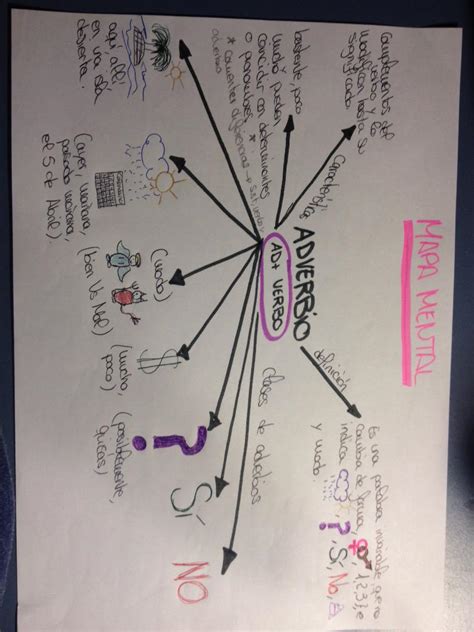 MAPA MENTAL
ADVERBIO
AD + VERBO
definición
Es una palabra invariable, que no
cambia de forma,
1,2,3), e
indica
?, Sí, No,
y modo.
Características
Complementos del
verbo y lo
modifican hasta su
significado
bastante, poco
mucho pueden
coincidir con determinantes
o pronombres. *
* Comentar diferencias
clases de adverbios
aquí, allí
en una isla
desierta.
(ayer, mañana,
pasado mañana,
el 5 de Abril).
(modo)
(bien Vs Mal)
$
(mucho,
poco)
?
(posiblemente,
quizás)
SÍ
NO